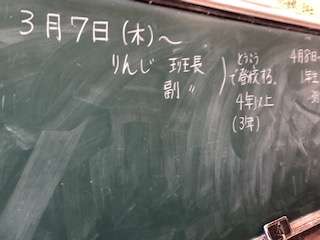 3月7日(木)～
りんじ 班長
副 〃
とうこう
で登校する。
4年以上
(3年)
4月8日
1年生